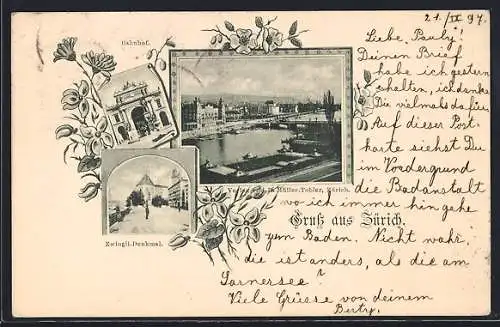 21./IX 97.
Bahnhof.
Liebe Pauly!
Deinen Brief
habe ich gestern
erhalten, ich danke
Die vielmals dafür
Auf dieser Post-
karte siehst Du
im Vordergrund
die Badanstalt
wo ich immer hingehe
Zürich.
Gruß aus Zürich.
Zwingli-Denkmal.
zum Baden. Nicht wahr,
die ist anders, als die am
Sarnersee?
Viele Grüsse von deinem
Berty.